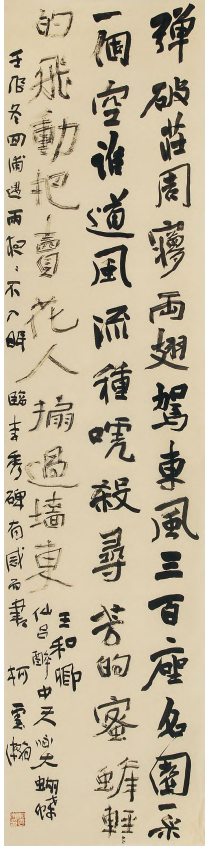 弹破莊周夢两翅駕東風三百座名園一采
一個空誰道風流種唬殺尋芳的蜜蜂輕輕
的飛動把賣花人搧過墻東
王和卿
仙吕醉中天咏大蝴蝶
壬 冬 雨 不入眠 臨李秀碑有感而書 柯雲瀚